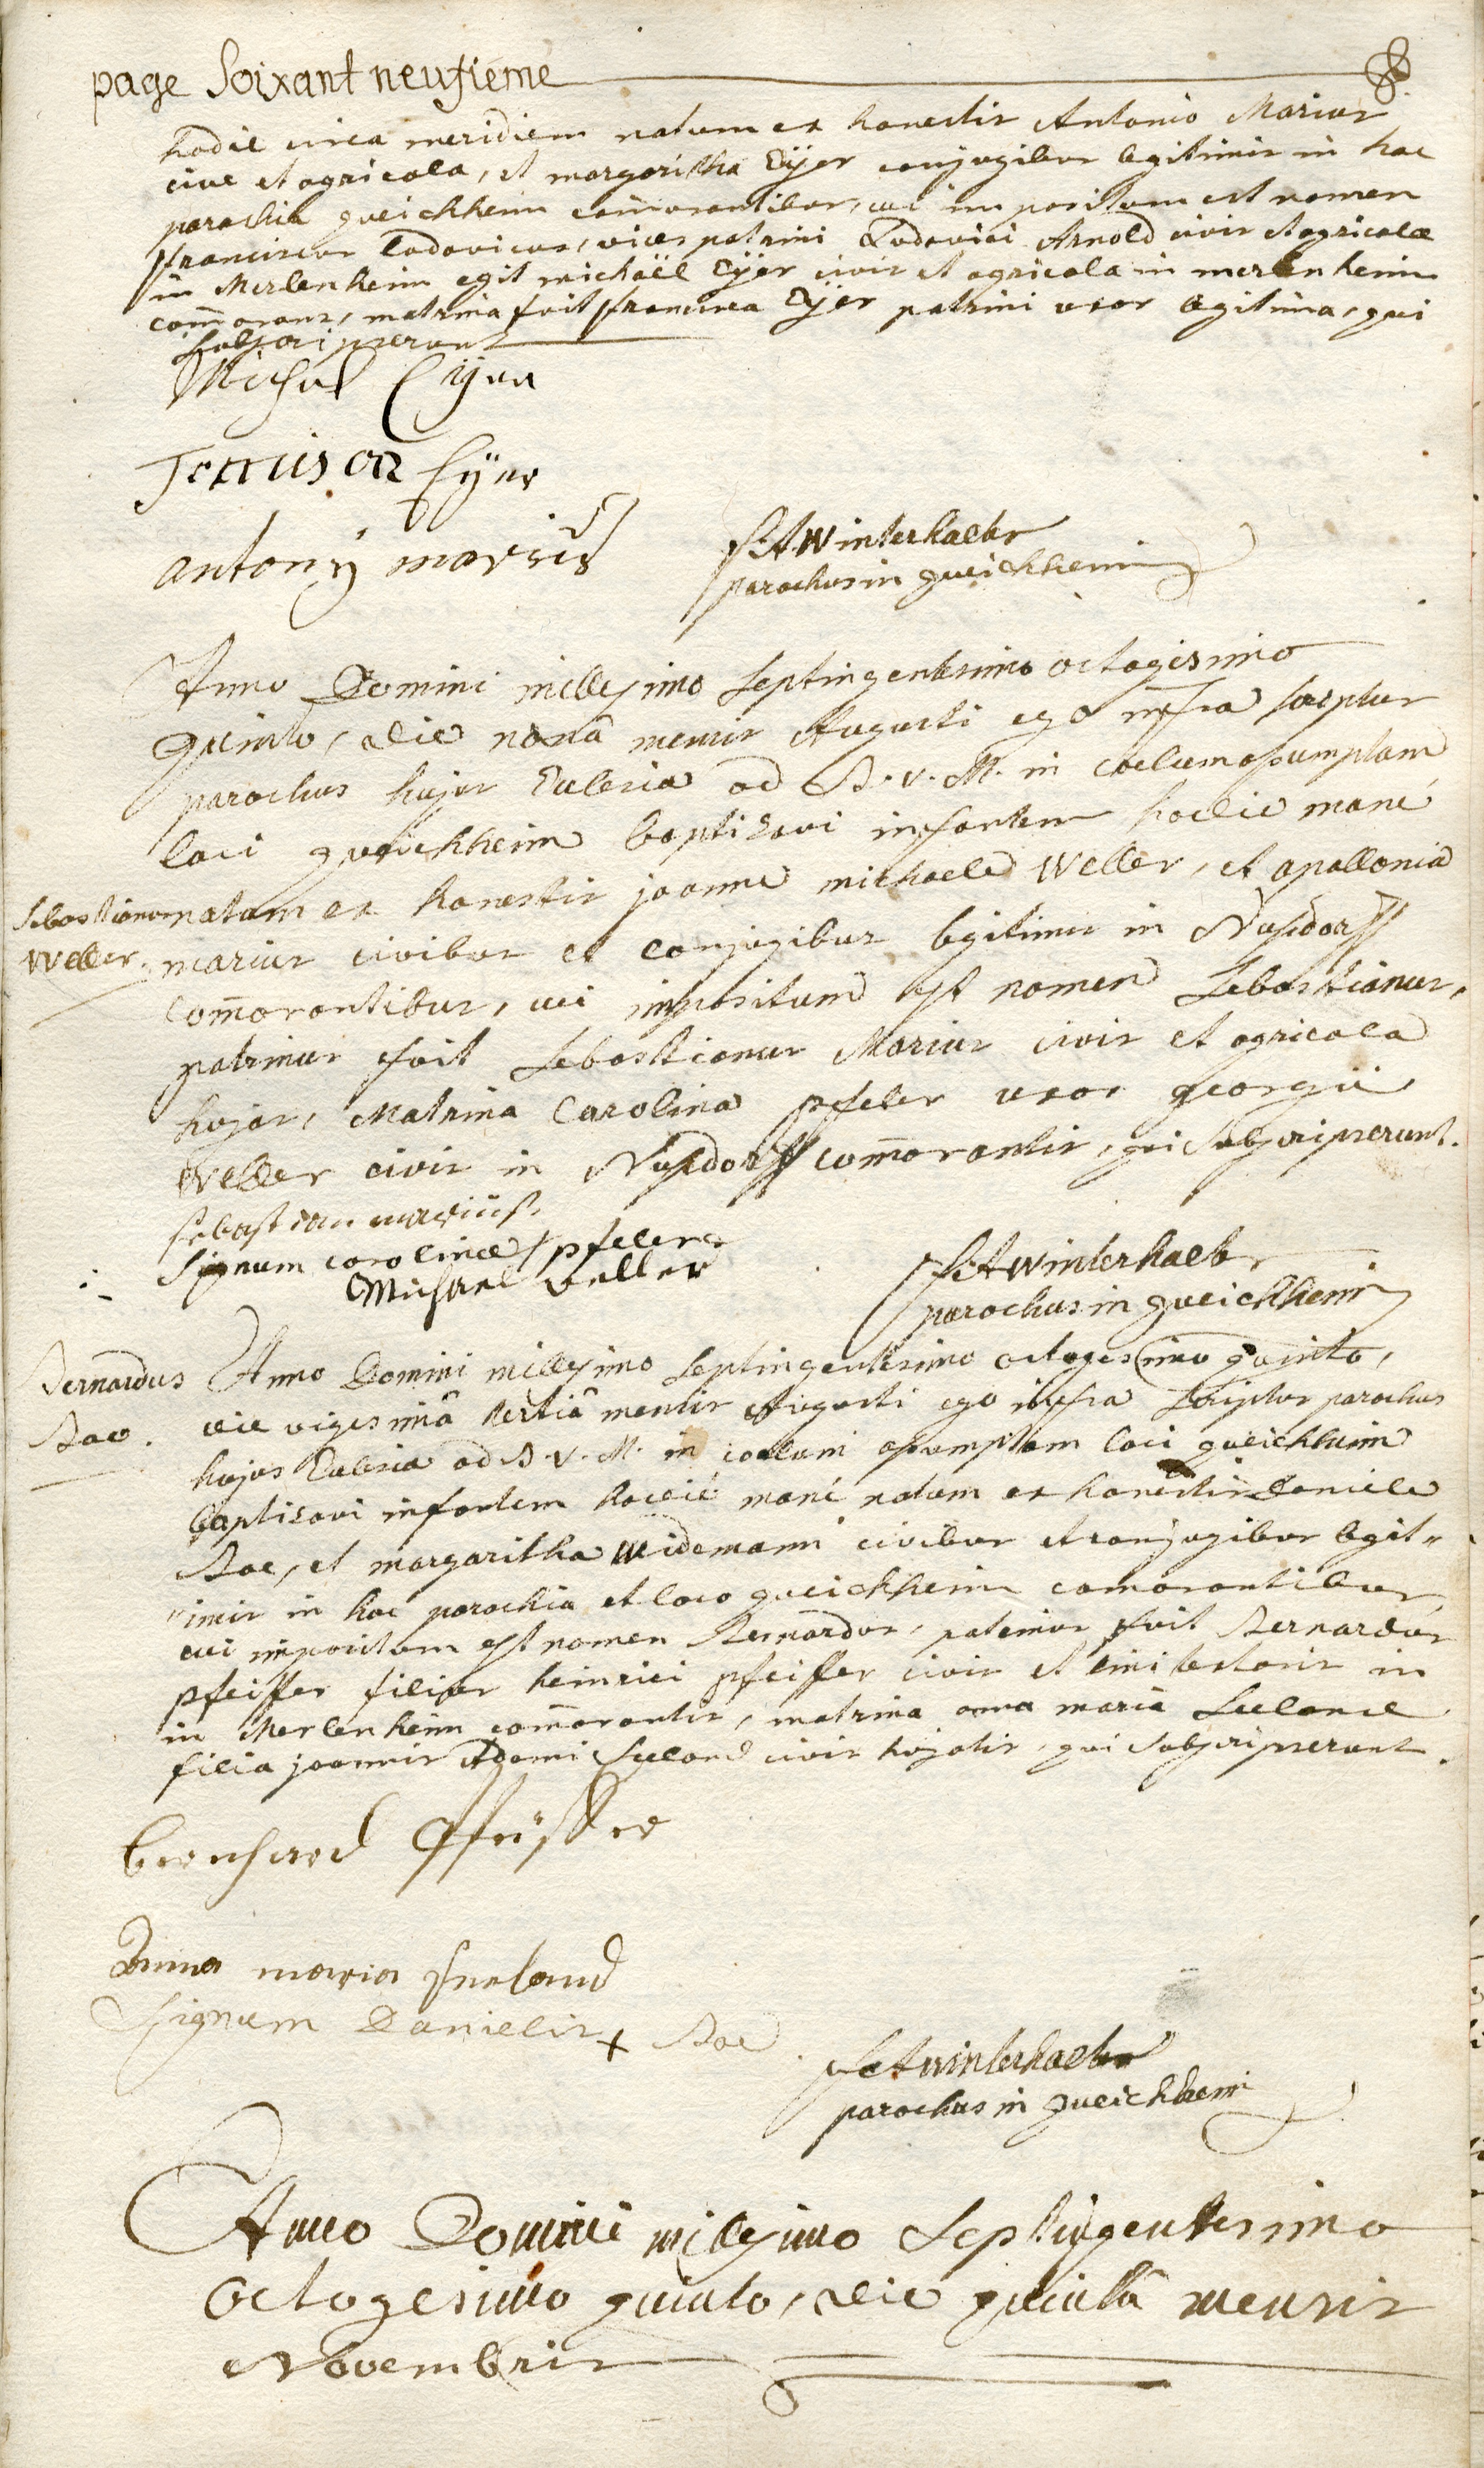 page Soixant neufieme
hodie circa meridiem natum ex honestis Antonio Marius
cive et agricola, et margaritha Eÿer conjugibus legitimis in hac
parochia queichheim com̄orantibus, cui impositum est nomen
franciscus Lodovicus, vices patrini Ludovici Arnold civis et agricolæ
in Merlenheim egit michaël Eÿer civis et agricola in merlenheim
com̄orans, matrina fuit francisca Eÿer patrini uxor legitima, qui
subscripserunt
Michael Eÿer
Eÿer
antonÿ marius
F A Winterhalter
parochus in queichheim
Anno Domini millesimo Septingentesimo octogesimo
quinto, die nonâ mensis Augusti ego infra scriptus
parochus hujus Ecclesiæ ad B. V. M. in coelum assumptam
loci queichheim baptisavi infantem hodie mané
Sebastianus
Weller.
natum ex honestis joanne michaele Weller, et apollonia
marius civibus et conjugibus legitimis in Nusdorff
com̄orantibus, cui impositum est nomen Sebastianus,
patrinus fuit Sebastianus Marius civis et agricola
hujas, Matrina Carolina pfeler uxor georgii
Weller civis in Nusdorff com̄orantis, qui subscripserunt.
sebastian marius
Signum carolinæ + pfelers
Michael veller
F A Winterhalter
parochus in queichheim
Bernardus
Anno Domini millesimo Septingentesimo octogesimo quinto,
die vigesimâ tertiâ mensis Augusti ego infra Scriptus parochus
hujus Ecclesiæ ad B. V. M. in coelum assumptam loci queichheim
baptisavi infantem hodié mané natum ex honestis Daniele
et margaritha Widemann civibus et conjugibus legit"
"imis in hac parochia et loco queichheim comorantibus,
cui impositum est nomen Bernardus, patrinus fuit Bernardus
pfeiffer filius heinrici pfeiffer civis et in
in Merlenheim com̄orantis, matrina anna maria Seeland
filia joannis Adami Seeland civis hujatis, qui subscripserunt.
bernhard Pfeiffer
Anna maria Seeland
Signum Danielis +
F A Winterhalter
parochus in queichheim
Anno Domini millesimo Septingentesimo
octogesimo quinto, die quintâ mensis
Novembris